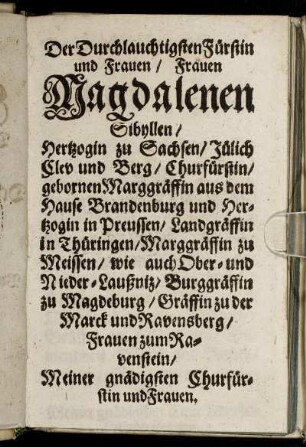 Der Durchlauchtigsten Fürstin
und Frauen / Frauen
Magdalenen
Sibyllen /
Hertzogin zu Sachsen / Jülich
Clev und Berg / Churfürstin /
gebornen Marggräffin aus dem
Hause Brandenburg und Her-
tzogin in Preussen / Landgräffin
in Thüringen / Marggräffin zu
Meissen / wie auch Ober- und
Nieder-Laußnitz / Burggräffin
zu Magdeburg / Gräffin zu der
Marck und Ravensberg /
Frauen zum Ra-
venstein /
Meiner gnädigsten Churfür-
stin und Frauen.